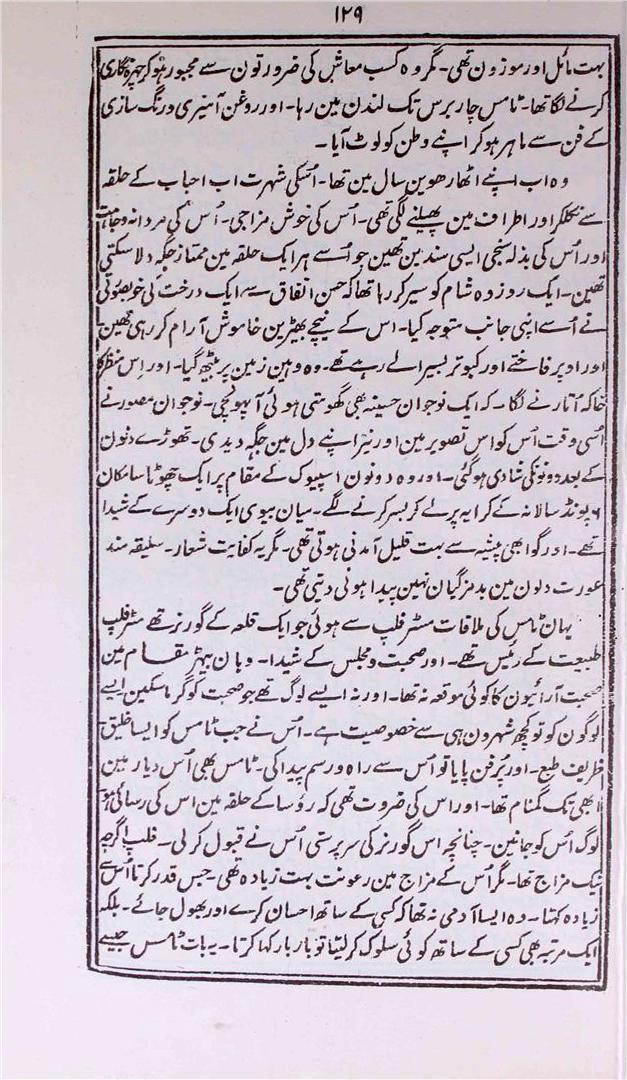 ۱۲۹
بہت مائل اور موزون تھی۔ مگر وہ کسب معاش کی ضرورتون سے مجبور ہو کر چہرہ نگاری
کرنے لگا تھا۔ ٹامس چار برس تک لندن مین رہا۔ اور روغن آمیزی و رنگ سازی
کے فن سے ماہر ہو کر اپنے وطن کو لوٹ آیا۔
وہ اب اپنے اٹھارھوین سال مین تھا۔ اُسکی شہرت اب احباب کے حلقہ
سے نکلکر اور اطراف مین پھیلنے لگی تھی۔ اُس کی خوش مزاجی۔ اُس کی مردانہ وجاہت
اور اُس کی بذلہ سنجی ایسی سندین تھین جو اُسے ہر ایک حلقہ مین ممتاز جگہ دلا سکتی
تھین۔ ایک روز وہ شام کو سیر کر رہا تھا کہ حسن اتفاق سے ایک درخت کی خوبصورتی
نے اُسے اپنی جانب متوجہ کیا۔ اس کے نیچے بھیڑین خاموش آرام کر رہی تھین
اور اوپر فاختے اور کبوتر بسیرا لے رہے تھے۔ وہ وہین زمین پر بیٹھ گیا۔ اور اِس منظر کا
خاکہ اُتارنے لگا۔ کہ ایک نوجوان حسینہ بھی گھومتی ہوئی آ پہونچی۔ نوجوان مصور نے
اُسی وقت اُس کو اس تصویر مین اور نیز اپنے دل مین جگہ دیدی۔ تھوڑے دنون
کے بعد دونونکی شادی ہو گئی۔ اور وہ دونون اسپیوک کے مقام پر ایک چھوٹا سا مکان
۶ پونڈ سالانہ کے کرایہ پر لے کر بسر کرنے لگے۔ میان بیوی ایک دوسرے کے شیدا
تھے۔ اور گو ابھی پیشہ سے بہت قلیل آمدنی ہوتی تھی۔ مگر یہ کفایت شعار۔ سلیقہ مند
عورت دلون مین بدمزگیان نہین پیدا ہونی دیتی تھی۔
یہان ٹامس کی ملاقات مسٹر فلپ سے ہوئی جو ایک قلعہ کے گورنر تھے مسٹر فلپ
طبیعت کے رئیس تھے۔ اور صحبت و مجلس کے شیدا۔ وہان بیہڑ مقام مین
صحبت آرائیون کا کوئی موقعہ نہ تھا۔ اور نہ ایسے لوگ تھے جو صحبت کو گرما سکین ایسے
لوگون کو تو کچھ شہرون ہی سے خصوصیت ہے۔ اُس نے جب ٹامس کو ایسا خلیق
ظریف طبع۔ اور پُر فن پایا تو اُس سے راہ و رسم پیدا کی۔ ٹامس بھی اُس دیار مین
ابھی تک گمنام تھا۔ اور اس کی ضرورت تھی کہ رؤسا کے حلقہ مین اس کی رسائی ہو
لوگ اُس کو جانین۔ چنانچہ اس گورنر کی سرپرستی اُس نے قبول کر لی۔ فلپ اگرچہ
نیک مزاج تھا۔ مگر اُس کے مزاج مین رعونت بہت زیادہ تھی۔ جس قدر کرتا اُس سے
زیادہ کہتا۔ وہ ایسا آدمی نہ تھا کہ کسی کے ساتھ احسان کرے اور بھول جائے۔ بلکہ
ایک مرتبہ بھی کسی کے ساتھ کوئی سلوک کر لیتا تو بار بار کہا کرتا۔ یہ بات ٹامس جیسے